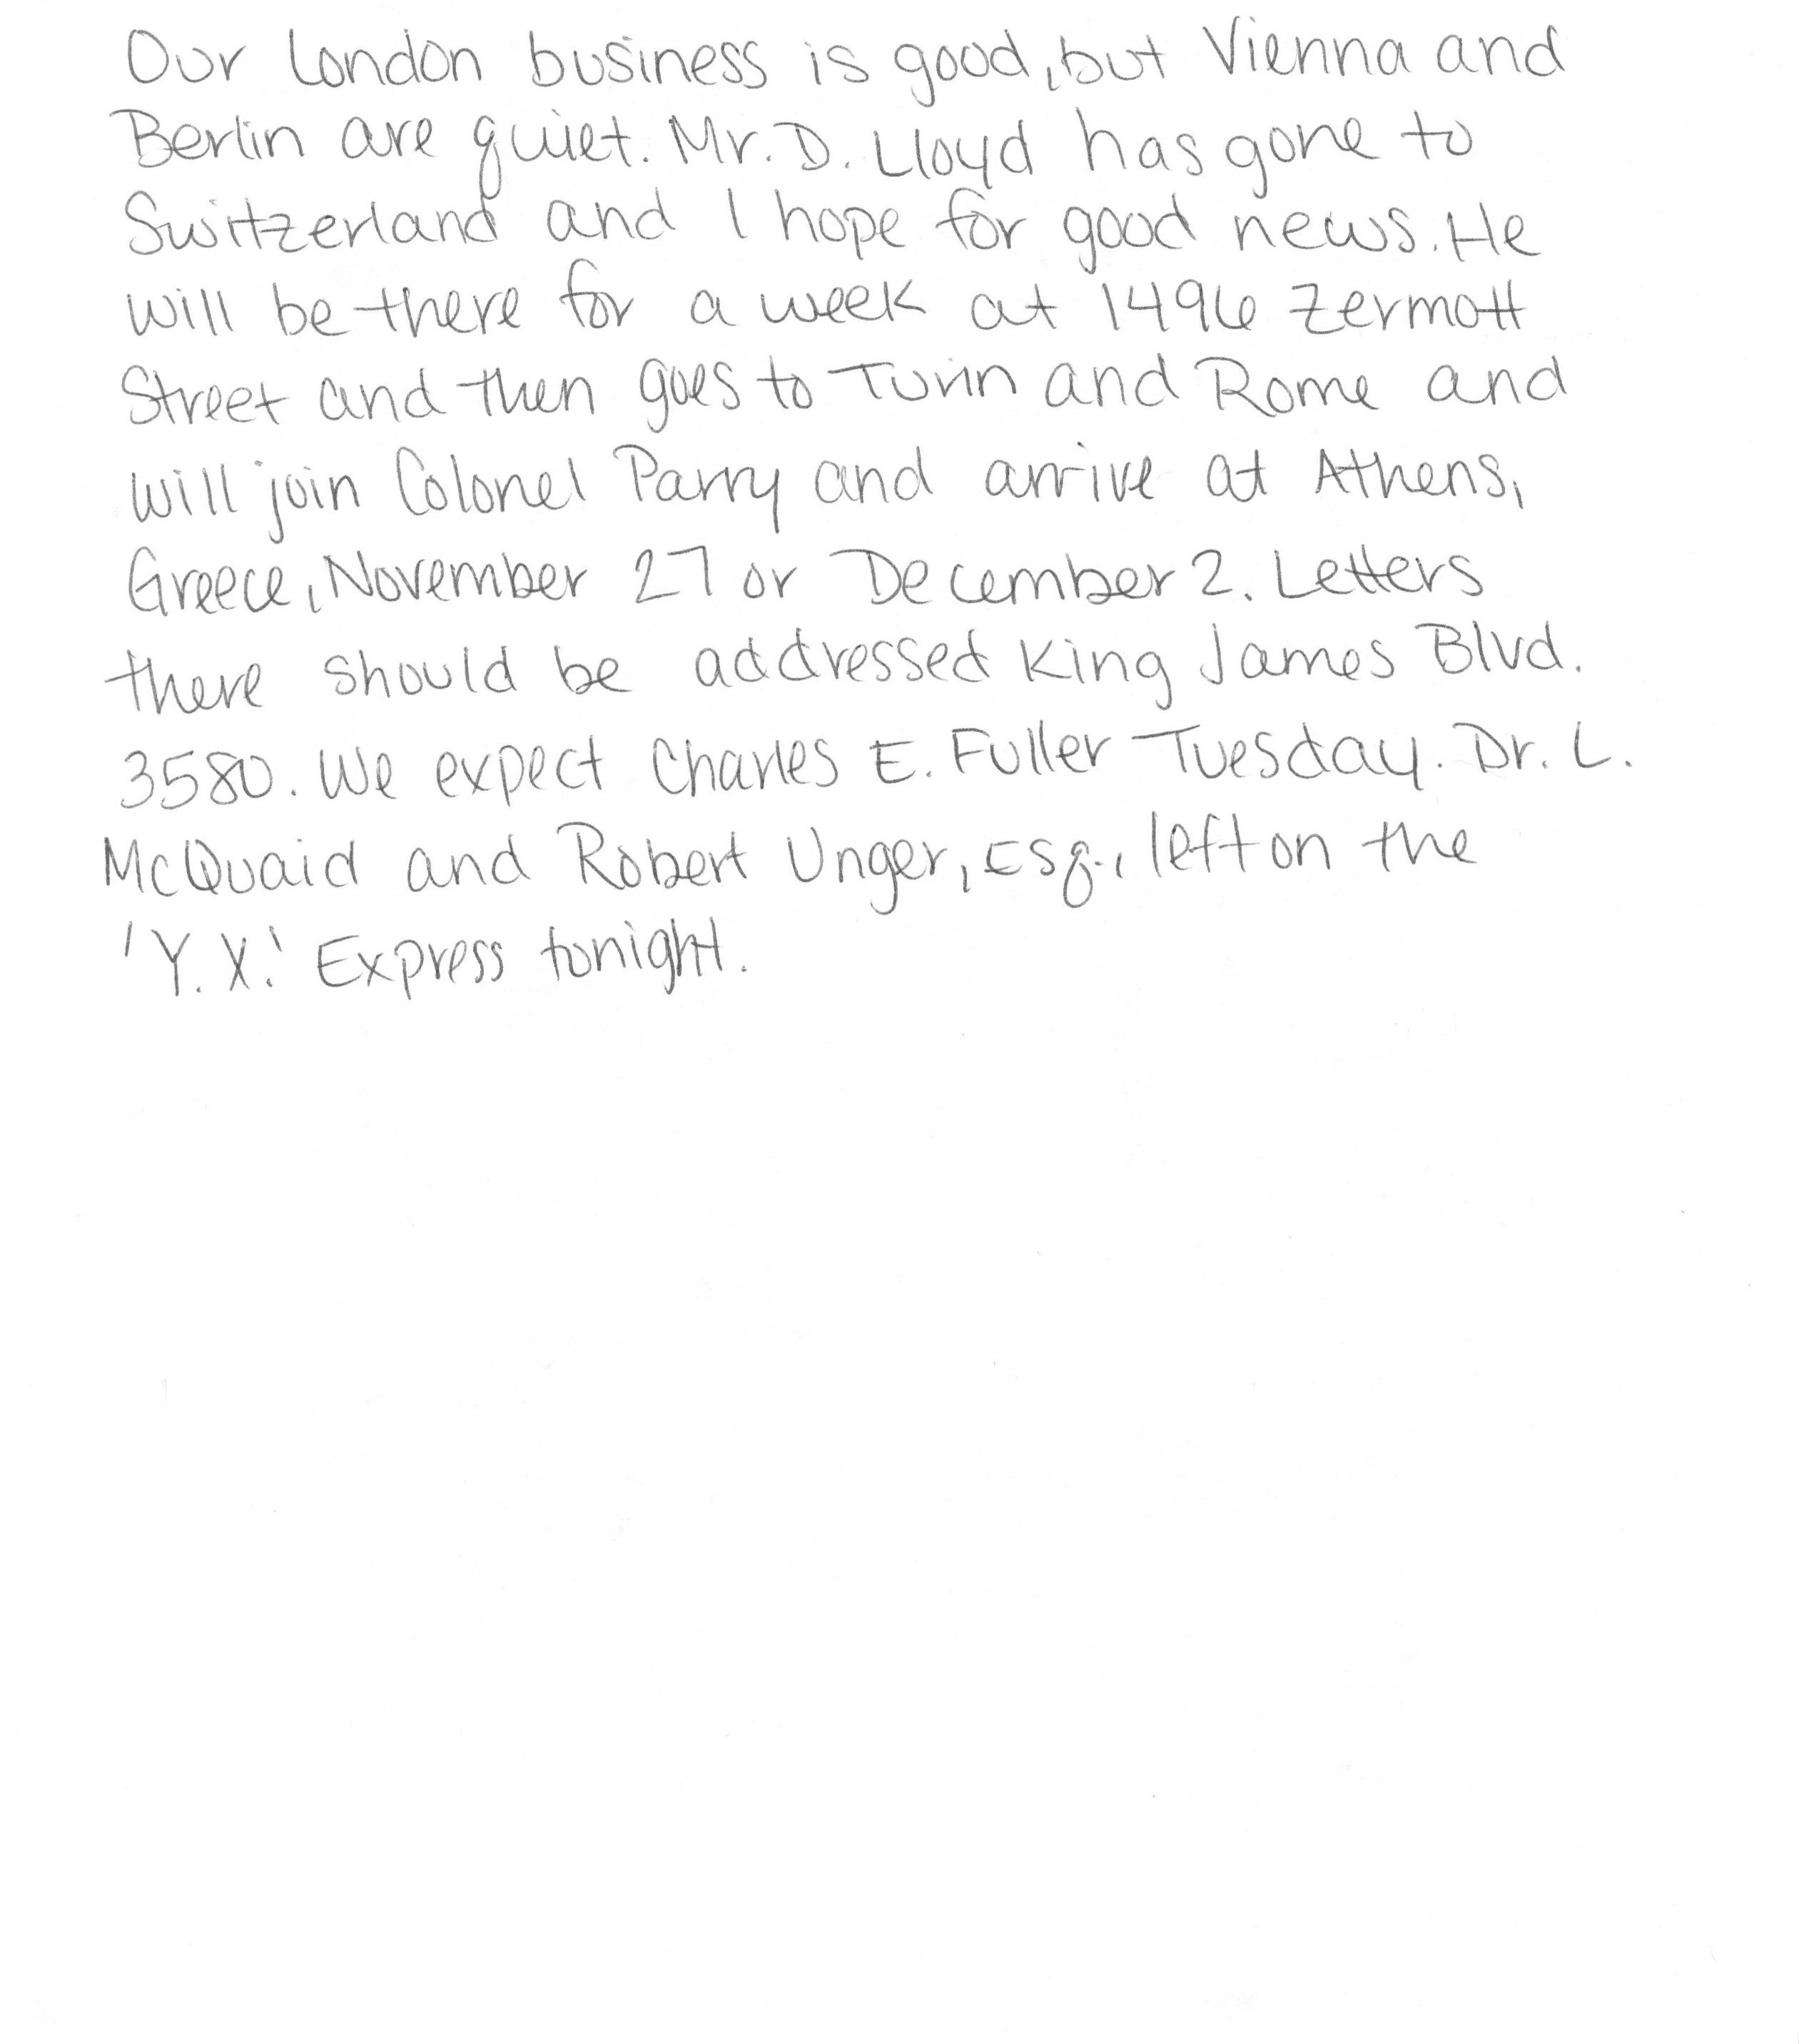 Our London business is good, but Vienna and
Berlin are quiet. Mr. D. Lloyd has gone to
Switzerland and I hope for good news. He
will be there for a week at 1496 Zermott
Street and then goes to Turin and Rome and
will join Colonel Parry and arrive at Athens,
Greece, November 27 or December 2. Letters
there should be addressed King James Blvd.
3580. We expect Charles E. Fuller Tuesday. Dr. L.
McQuaid and Robert Unger, Esq., left on the
'Y.X.' Express tonight.